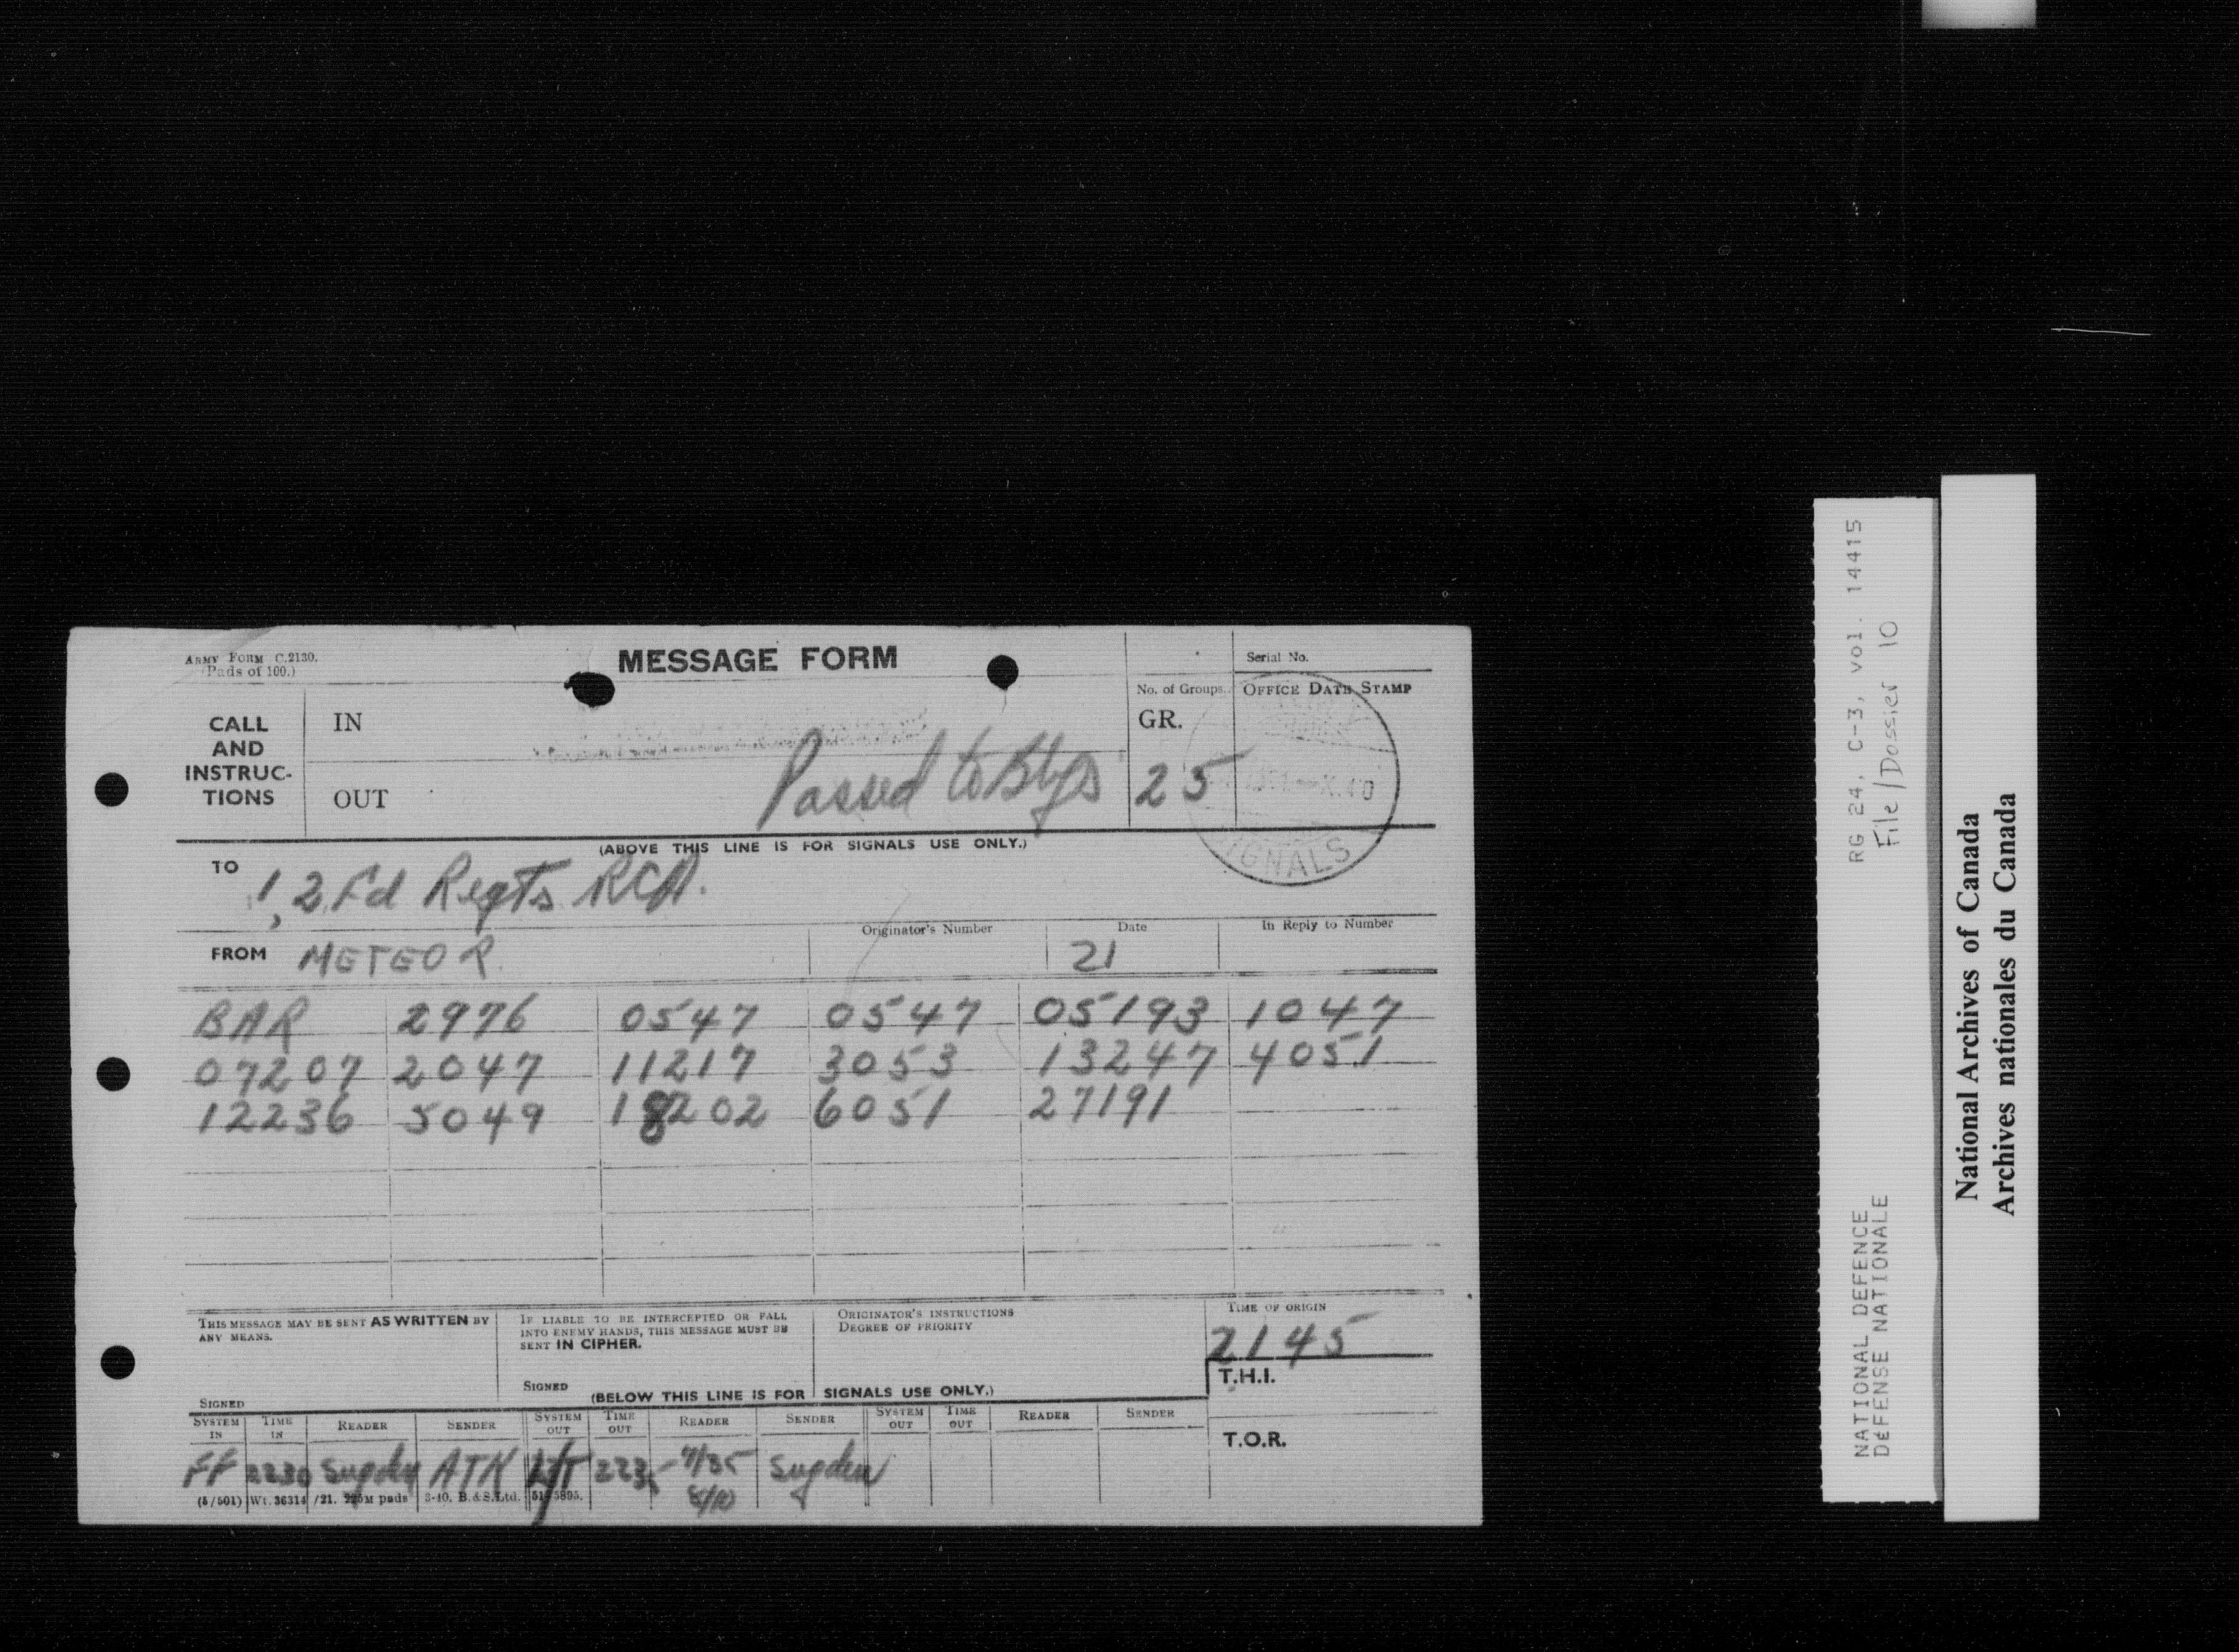 ARMY FORM C.2130.
(Pads of 100.)
MESSAGE FORM
Serial No.
No. of Groups.
OFFICE DATE STAMP
CALL
AND
INSTRUC-
TIONS
IN
OUT
Passed to Btys
GR.
25
X.40
SIGNALS
(ABOVE THIS LINE IS FOR SIGNALS USE ONLY.)
TO
1, 2 Fd Regts RCA.
FROM METEOR.
Originator's Number
Date
21
In Reply to Number
BAR 2976 0547 0547 05193 1047
07207 2047 11217 3053 13247 4051
12236 5049 18202 6051 27191
THIS MESSAGE MAY BE SENT AS WRITTEN BY
ANY MEANS.
SIGNED
IF LIABLE TO BE INTERCEPTED OR FALL
INTO ENEMY HANDS, THIS MESSAGE MUST BE
SENT IN CIPHER.
SIGNED
ORIGINATOR'S INSTRUCTIONS
DEGREE OF PRIORITY
TIME OF ORIGIN
2145
T.H.I.
T.O.R.
(BELOW THIS LINE IS FOR SIGNALS USE ONLY.)
SYSTEM IN TIME IN READER SENDER SYSTEM OUT TIME OUT READER SENDER SYSTEM OUT TIME OUT READER SENDER
FF 2230 Sugden ATK 2235 7/35 Sugden
8/10
(5/501) Wt. 36314/21. 225M pads 3-40. B.&S.Ltd. 51-5895.
RG 24, C-3, vol. 14415
File/Dossier 10
NATIONAL DEFENCE
DÉFENSE NATIONALE
National Archives of Canada
Archives nationales du Canada